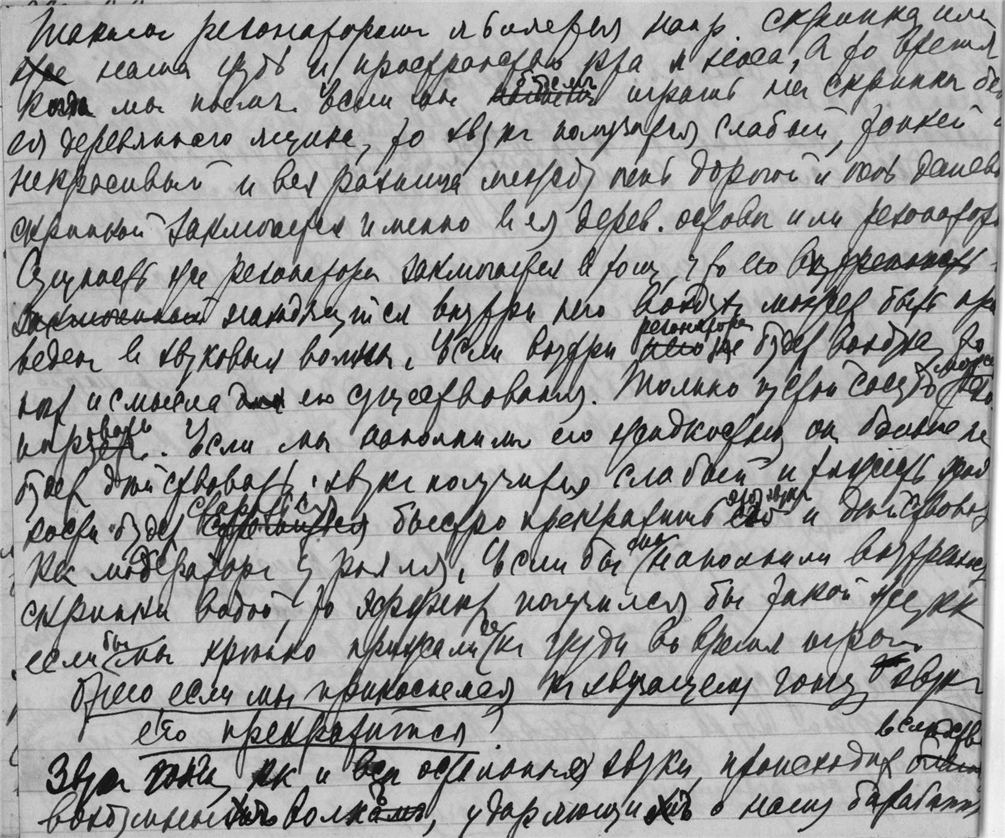 Такими резонаторами являются напр. скрипка или
наша грудь и пространство рта и носа, а во время
когда мы поем. Если мы будем играть на скрипке без
ея деревяннаго ящика, то звук получится слабый, тонкий и
некрасивый и вся разница между дорогой и дешевой
скрипкой заключается именно в ея дерев. основы или резонатора
Сущность же резонатора заключается в том, что его внутренность
находящийся внутри него воздух может быть при
веден в звуковыя волны. Если внутри резонатора не будет воздуха, то
нет и смысла для его существования. Только
Если мы наполним его жидкостью он больше не
будет действовать, звук получится слабый и тяжесть жид
кости будет стараться быстро прекратить этот звук и действовать
как модератор у рояля. Если бы мы наполнили внутренность
скрипки водой, то эффект получился бы такой же, как
если бы мы крепко прижали ее к груди во время игры.
если мы прикоснемся к звучащему тону звук
его прекратится.
Звук как и все остальные звуки, происходит вследствие
воздушных волн, ударяющих о нашу барабан